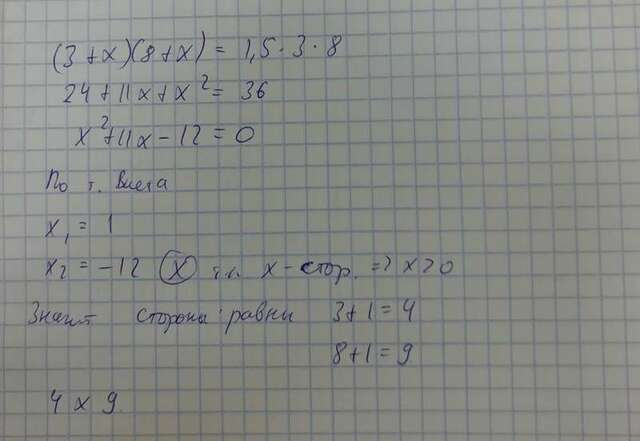 (3+x)(8+x) = 1,5 · 3 · 8
24+11x+x² = 36
x²+11x-12 = 0
По т. Виета
x₁ = 1
x₂ = -12 (x) т.к. x - стор. => x>0
Значит стороны равны 3+1=4
8+1=9
4 x 9